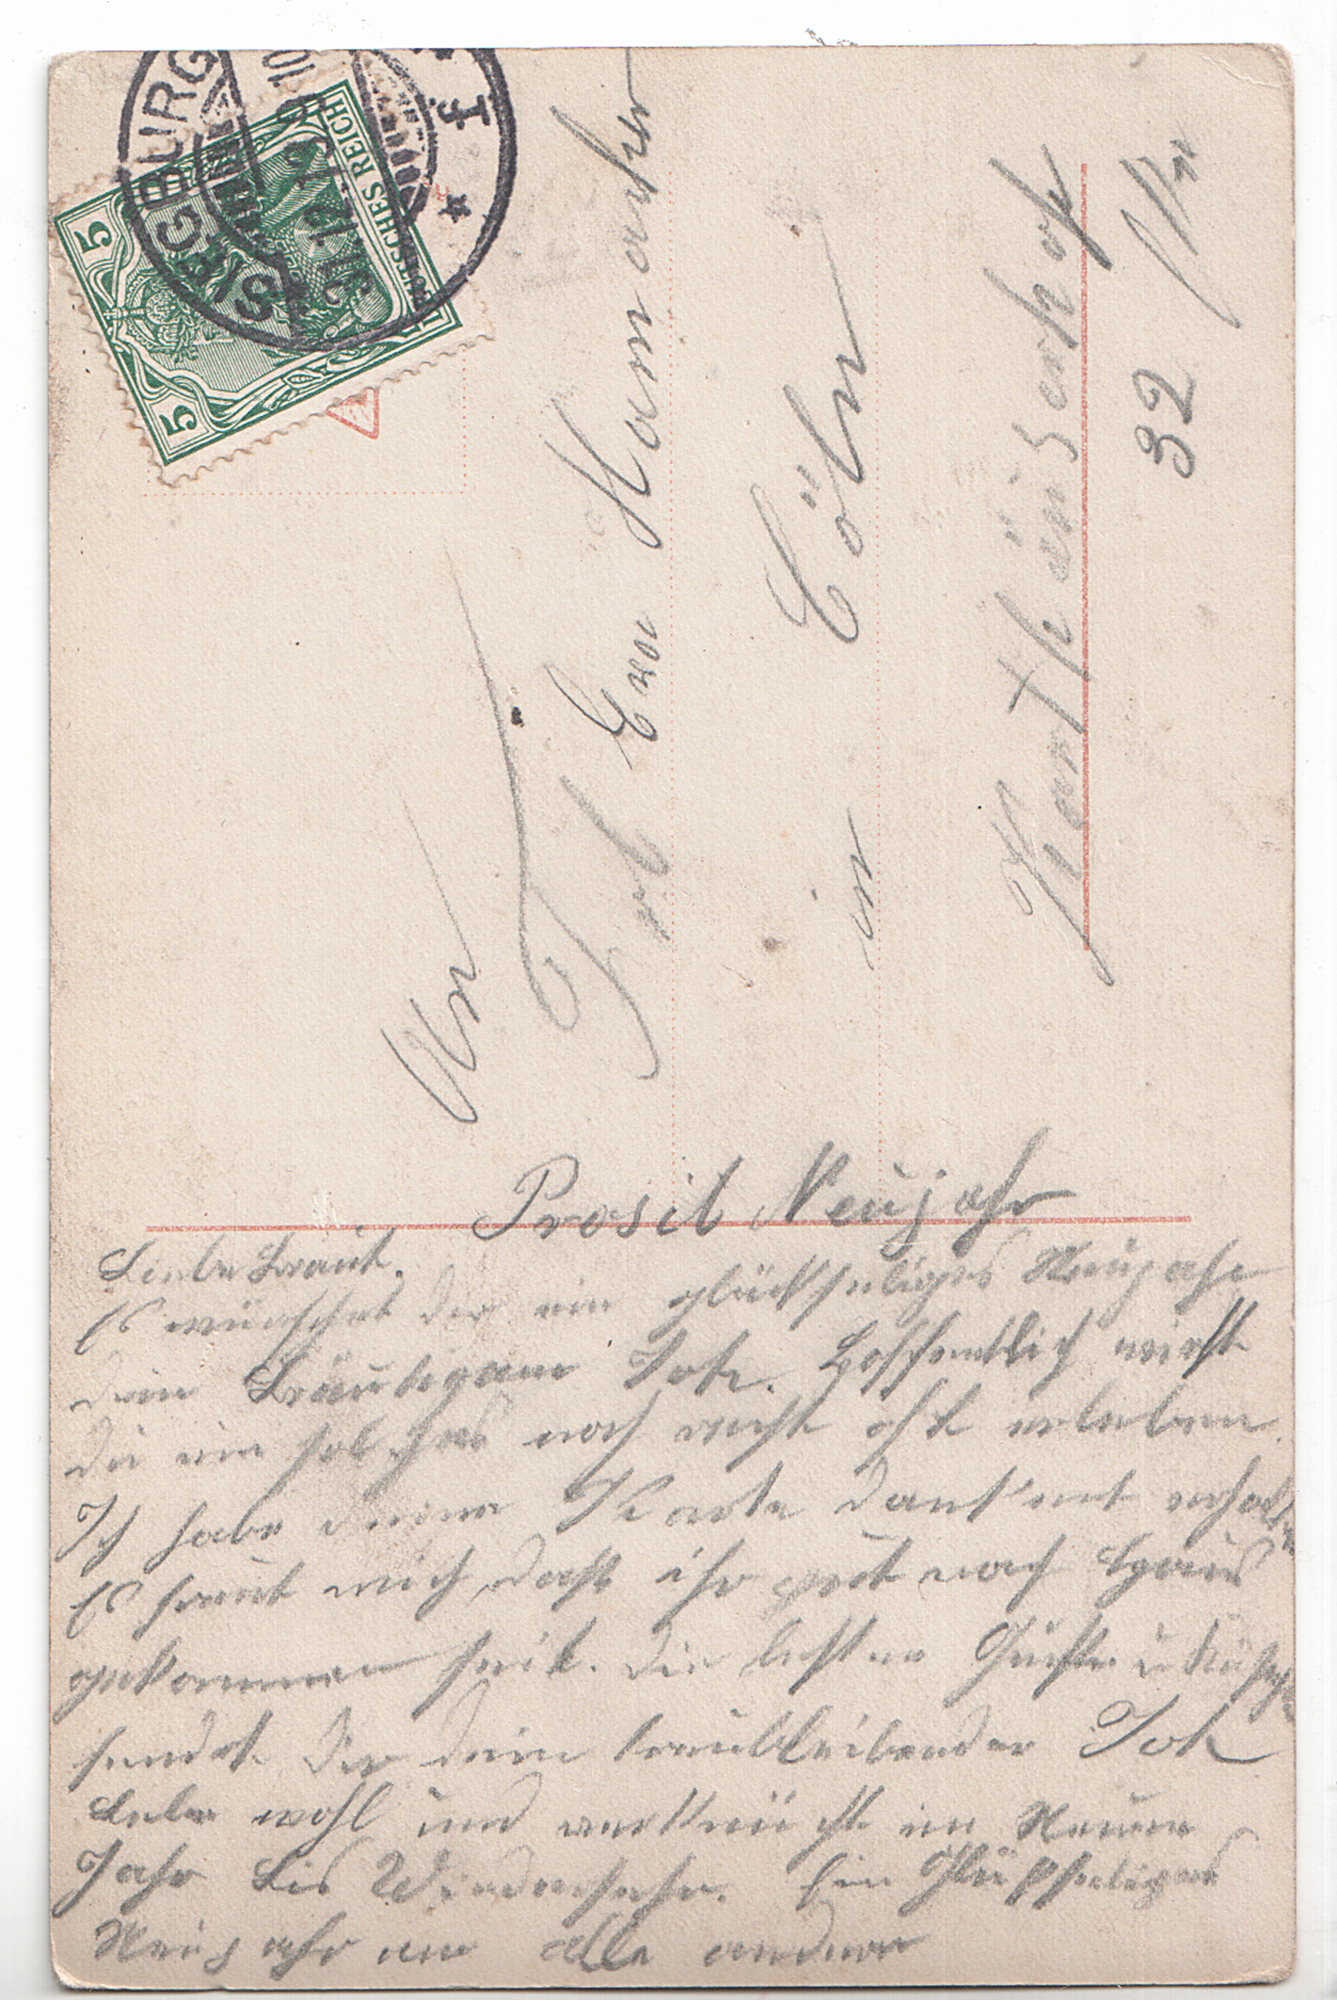 SIEGBURG
31.12.
DEUTSCHES REICH
5
5
An
Frl Erna Hamacher
in Cöln
Karthäuserhof
32
Prosit Neujahr
Liebe Braut.
Es wünschet dir ein glückseliges Neujahr
dein Bräutigam Hoffentlich wirst
du ein solches noch recht oft erleben.
Ich habe deine Karte dankent erhalten
Es freut mich, daß ihr gut nach Haus
gekommen seit. Die besten Grüße u Küsse
sendet dir dein treubleibender
Lebe wohl und vergnügt im Neuen
Jahr bis Wiedersehn. Ein Glückseliges
Neujahr an alle andern